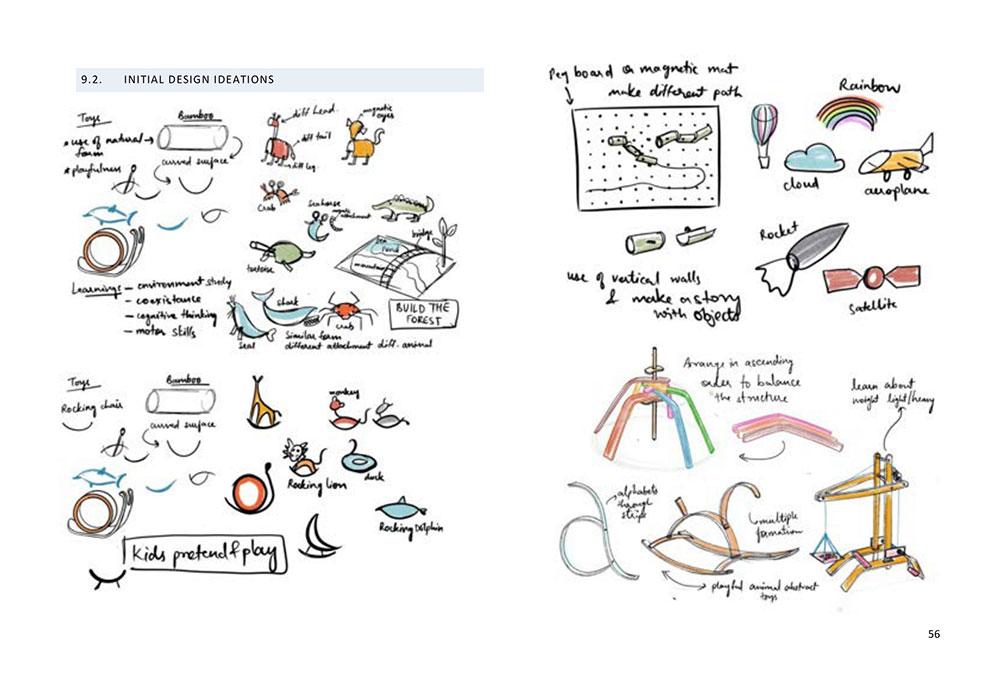 9.2. INITIAL DESIGN IDEATIONS
Toys
Bamboo
diff head.
magnetic
eyes
* use of natural
form
diff tail
* playfulness
curved surface
diff leg.
Crab
Seahorse
magnetic
attachment
tortoise
Sea
Pond
bridge
mountain
Learnings – environment study
– coexistance
– cognitive thinking
– motor skills
Shark
Seal
crab
Similar form
different attachment diff. animal
BUILD THE
FOREST
Toys
Bamboo
Rocking chair
curved surface
monkey
Rocking lion
duck
Rocking Dolphin
Kids pretend & play
Peg board or magnetic mat
make different path
Rainbow
cloud
aeroplane
Rocket
Satellite
use of vertical walls
& make a story
with objects
Arrange in ascending
order to balance
the structure
learn about
weight light/heavy
alphabets
through
strips
multiple
formation
playful animal abstract
toys
56